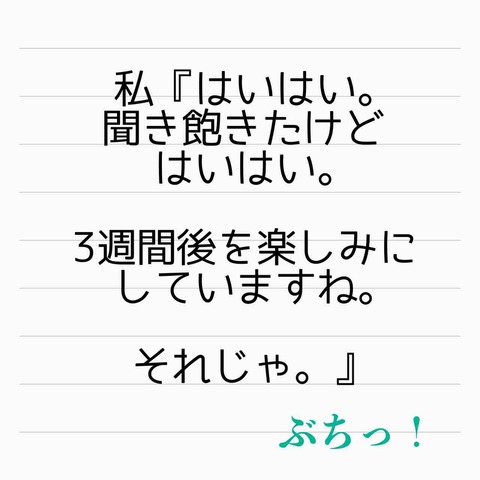 私『はいはい。
聞き飽きたけど
はいはい。
3週間後を楽しみに
していますね。
それじゃ。』
ぶちっ！